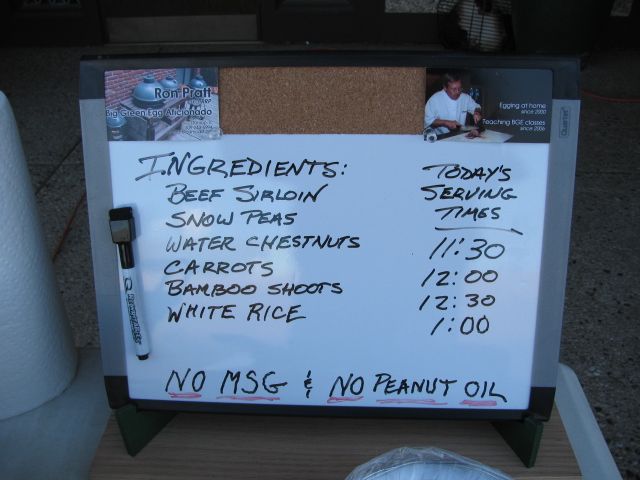 Ron Pratt
Big Green Egg Aficionado
Egging at home
since 2000
Teaching BGE classes
since 2006
Quartet
INGREDIENTS:
BEEF SIRLOIN
SNOW PEAS
WATER CHESTNUTS
CARROTS
BAMBOO SHOOTS
WHITE RICE
TODAY'S
SERVING
TIMES
11:30
12:00
12:30
1:00
NO MSG & NO PEANUT OIL